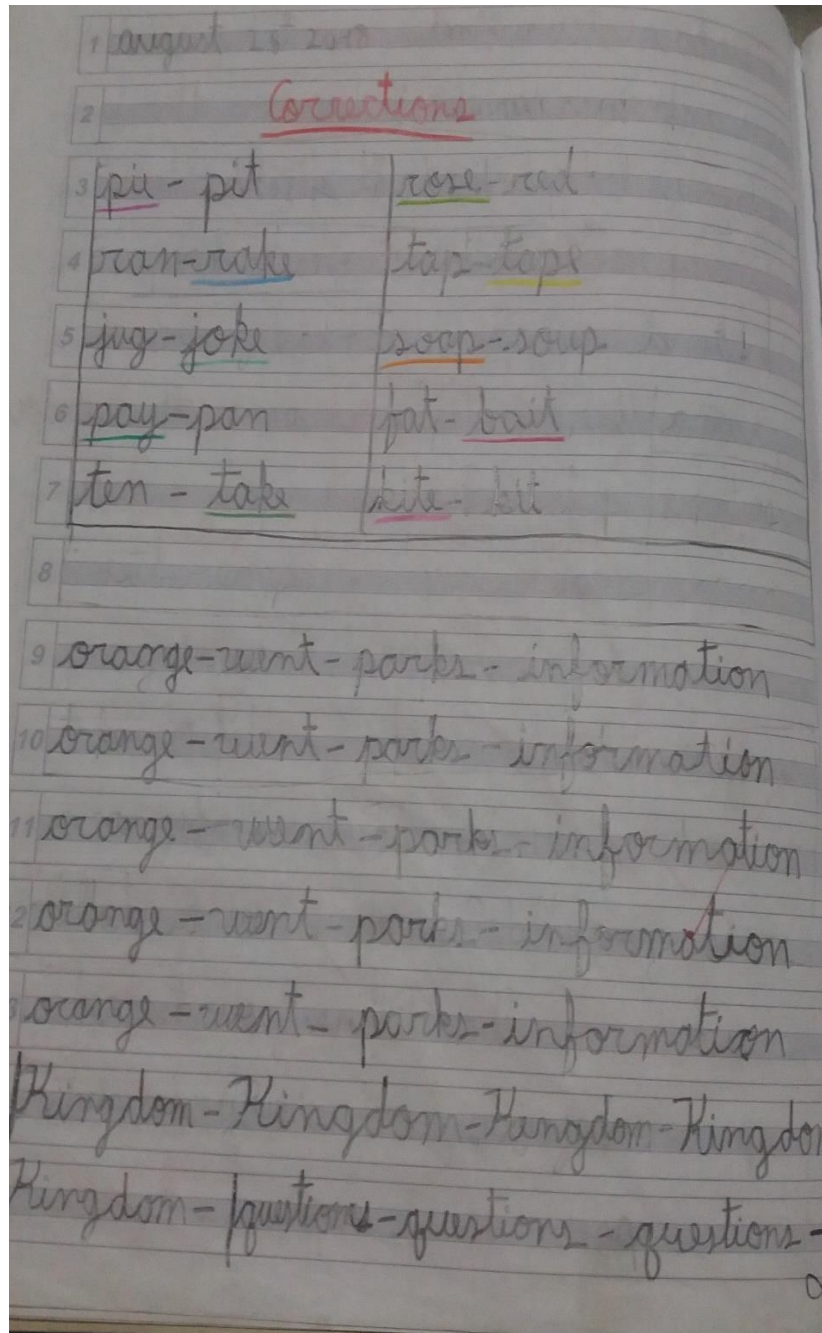 1 august 2018
2 Corrections
3 pie - pit rose - red
4 ran - rake tap - tape
5 jug - joke soap - soup
6 pay - pan fat - bait
7 ten - take kite - kit
8
9 oraorge - went - parks - information
10 orange - went - parks - information
11 orange - went - parks - information
2 orange - went - parks - information
orange - went - parks - information
Kingdom - Kingdom - Kingdom - Kingdo
Kingdom - questions - questions - questions -